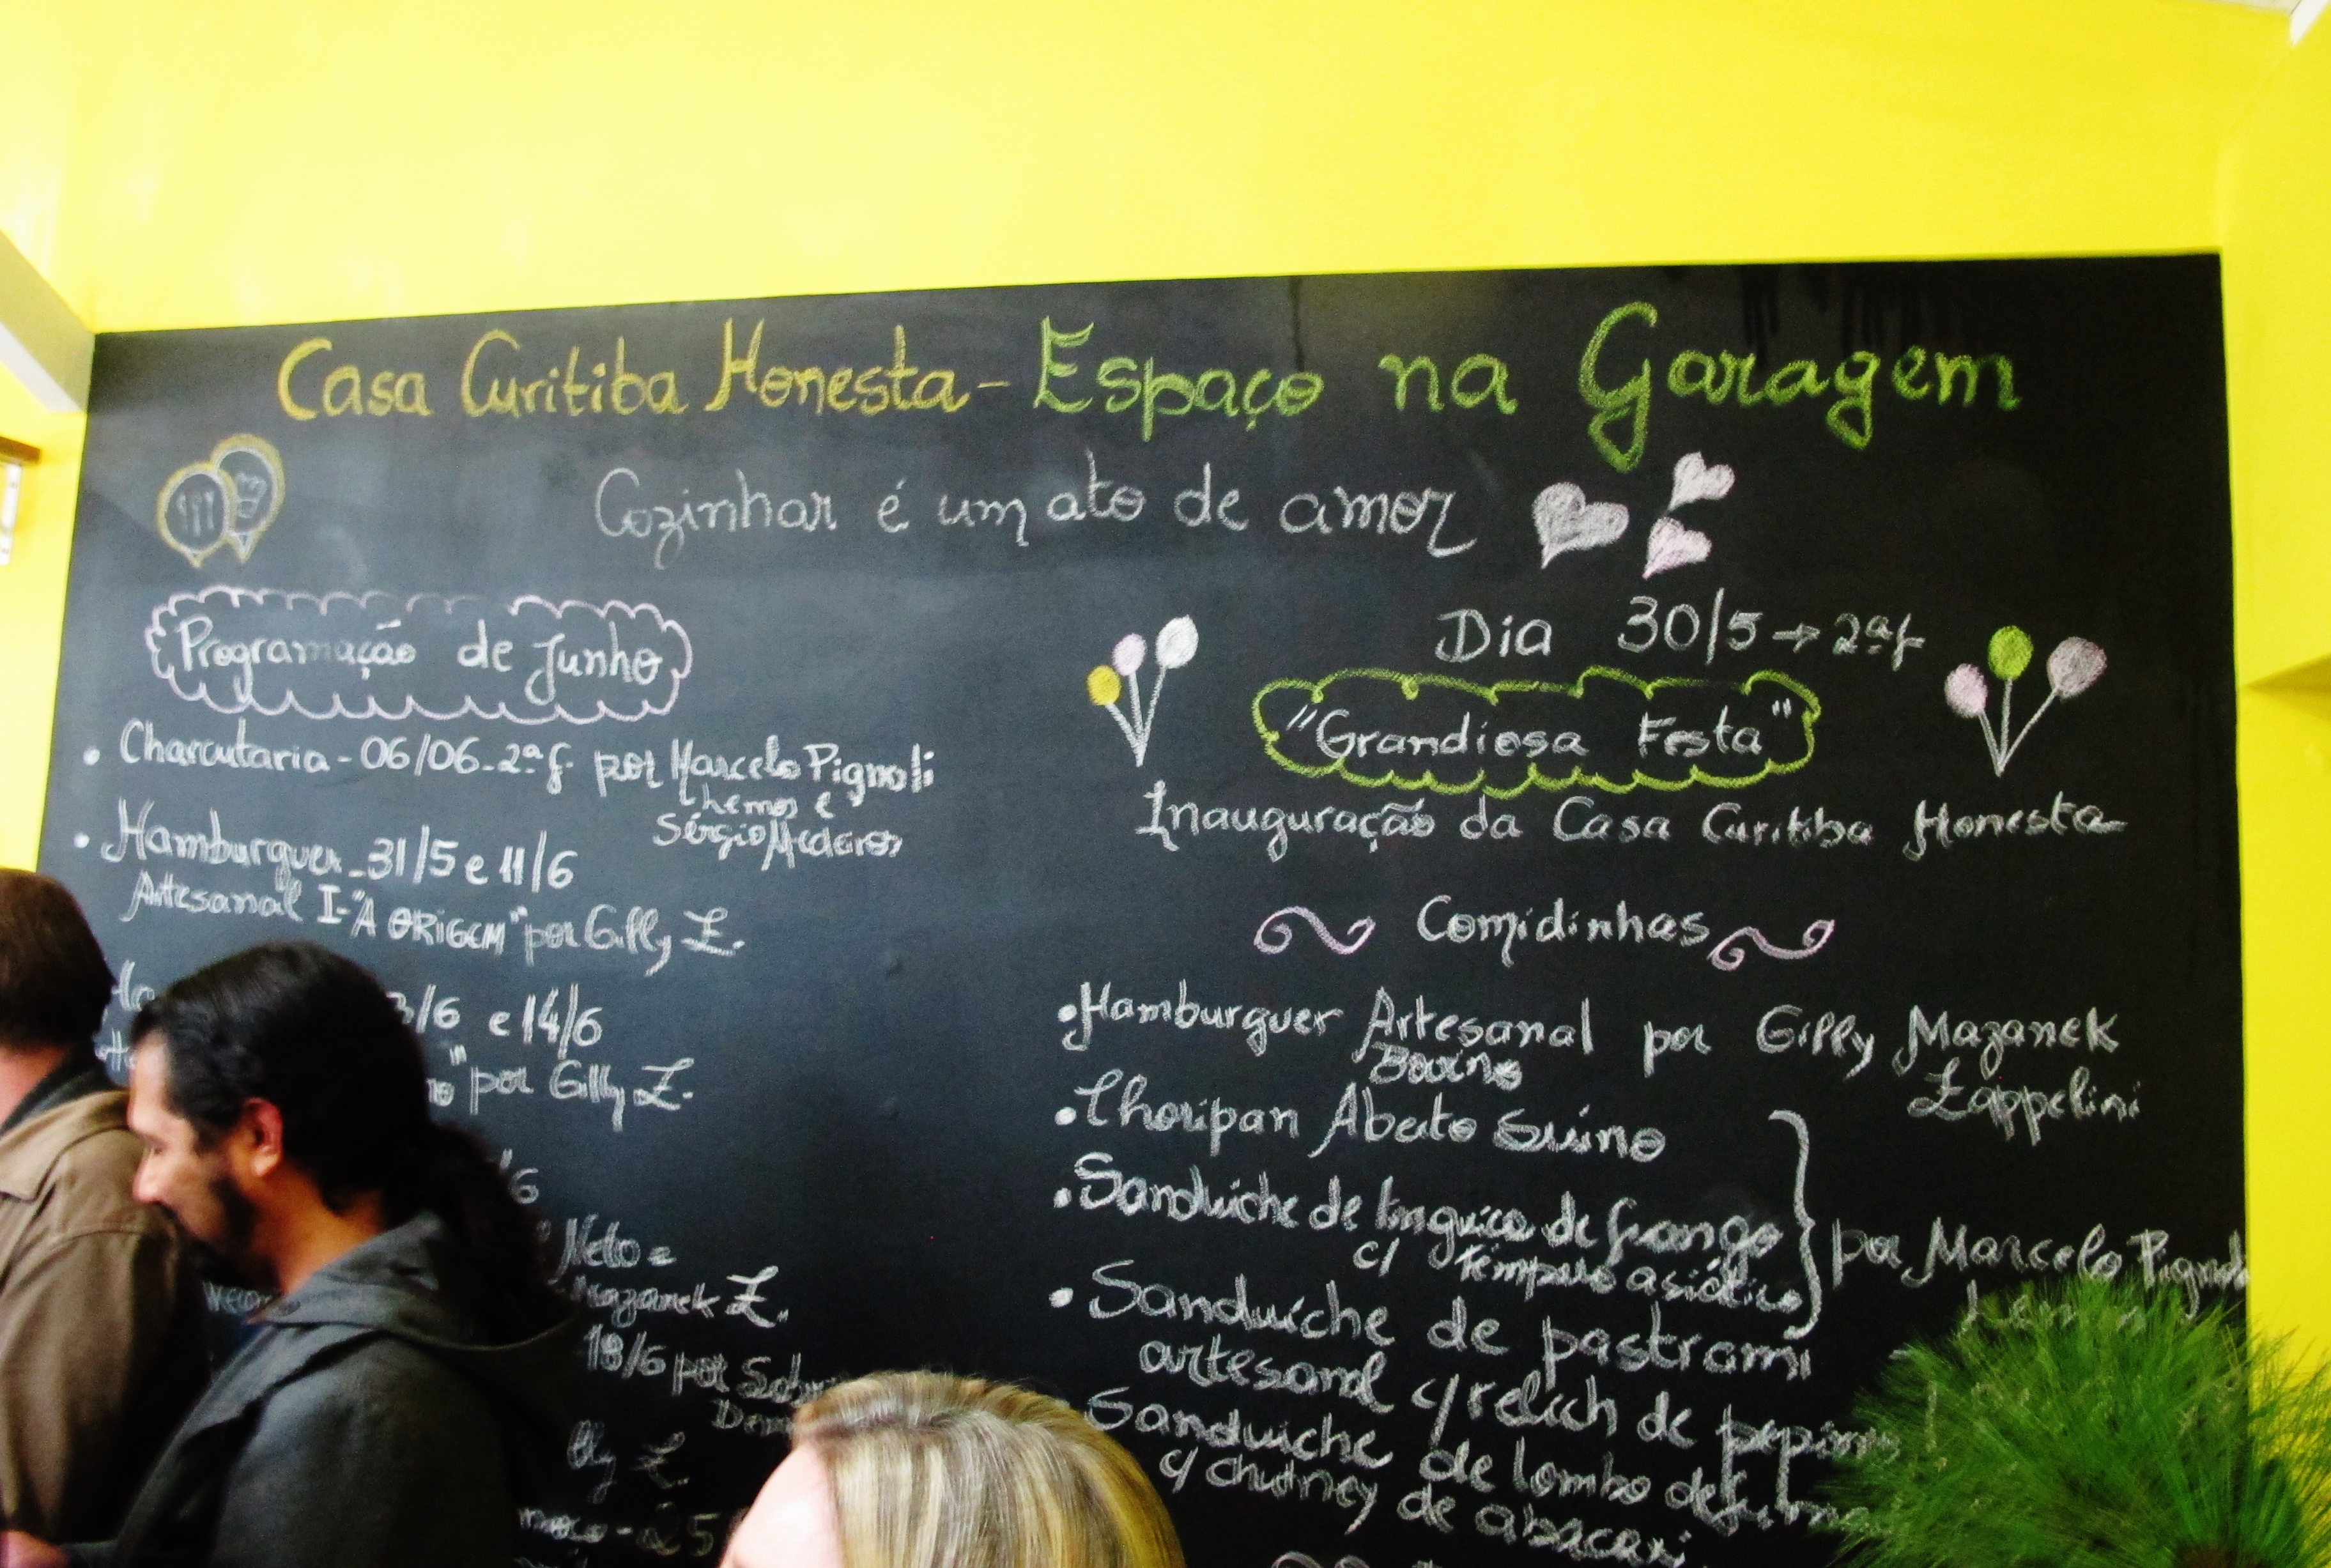 Casa Curitiba Honesta - Espaço na Garagem
Cozinhar é um ato de amor
Programação de Junho
• Charcutaria - 06/06 - 2ªf. por Marcelo Pignoli
Lhemos e
Sérgio Medeiros
• Hamburguer - 31/5 e 11/6
Artesanal I - "A ORIGEM" por Gilly Z.
/6 e 14/6
" por Gilly Z.
/6
Neto e
Mazanek Z.
18/6 por
Z.
- 25
Dia 30/5 → 2ªf
"Grandiosa Festa"
Inauguração da Casa Curitiba Honesta
Comidinhas
• Hamburguer Artesanal por Gilly Mazanek
Bovino
Zappelini
• Choripan Aberto Suíno
• Sanduiche de linguiça de frango
c/ tempero asiático
por Marcelo Pignoli
• Sanduíche de pastrami
artesanal c/ relish de pepino
Sanduiche de lombo defumado
c/ chutney de abacaxi